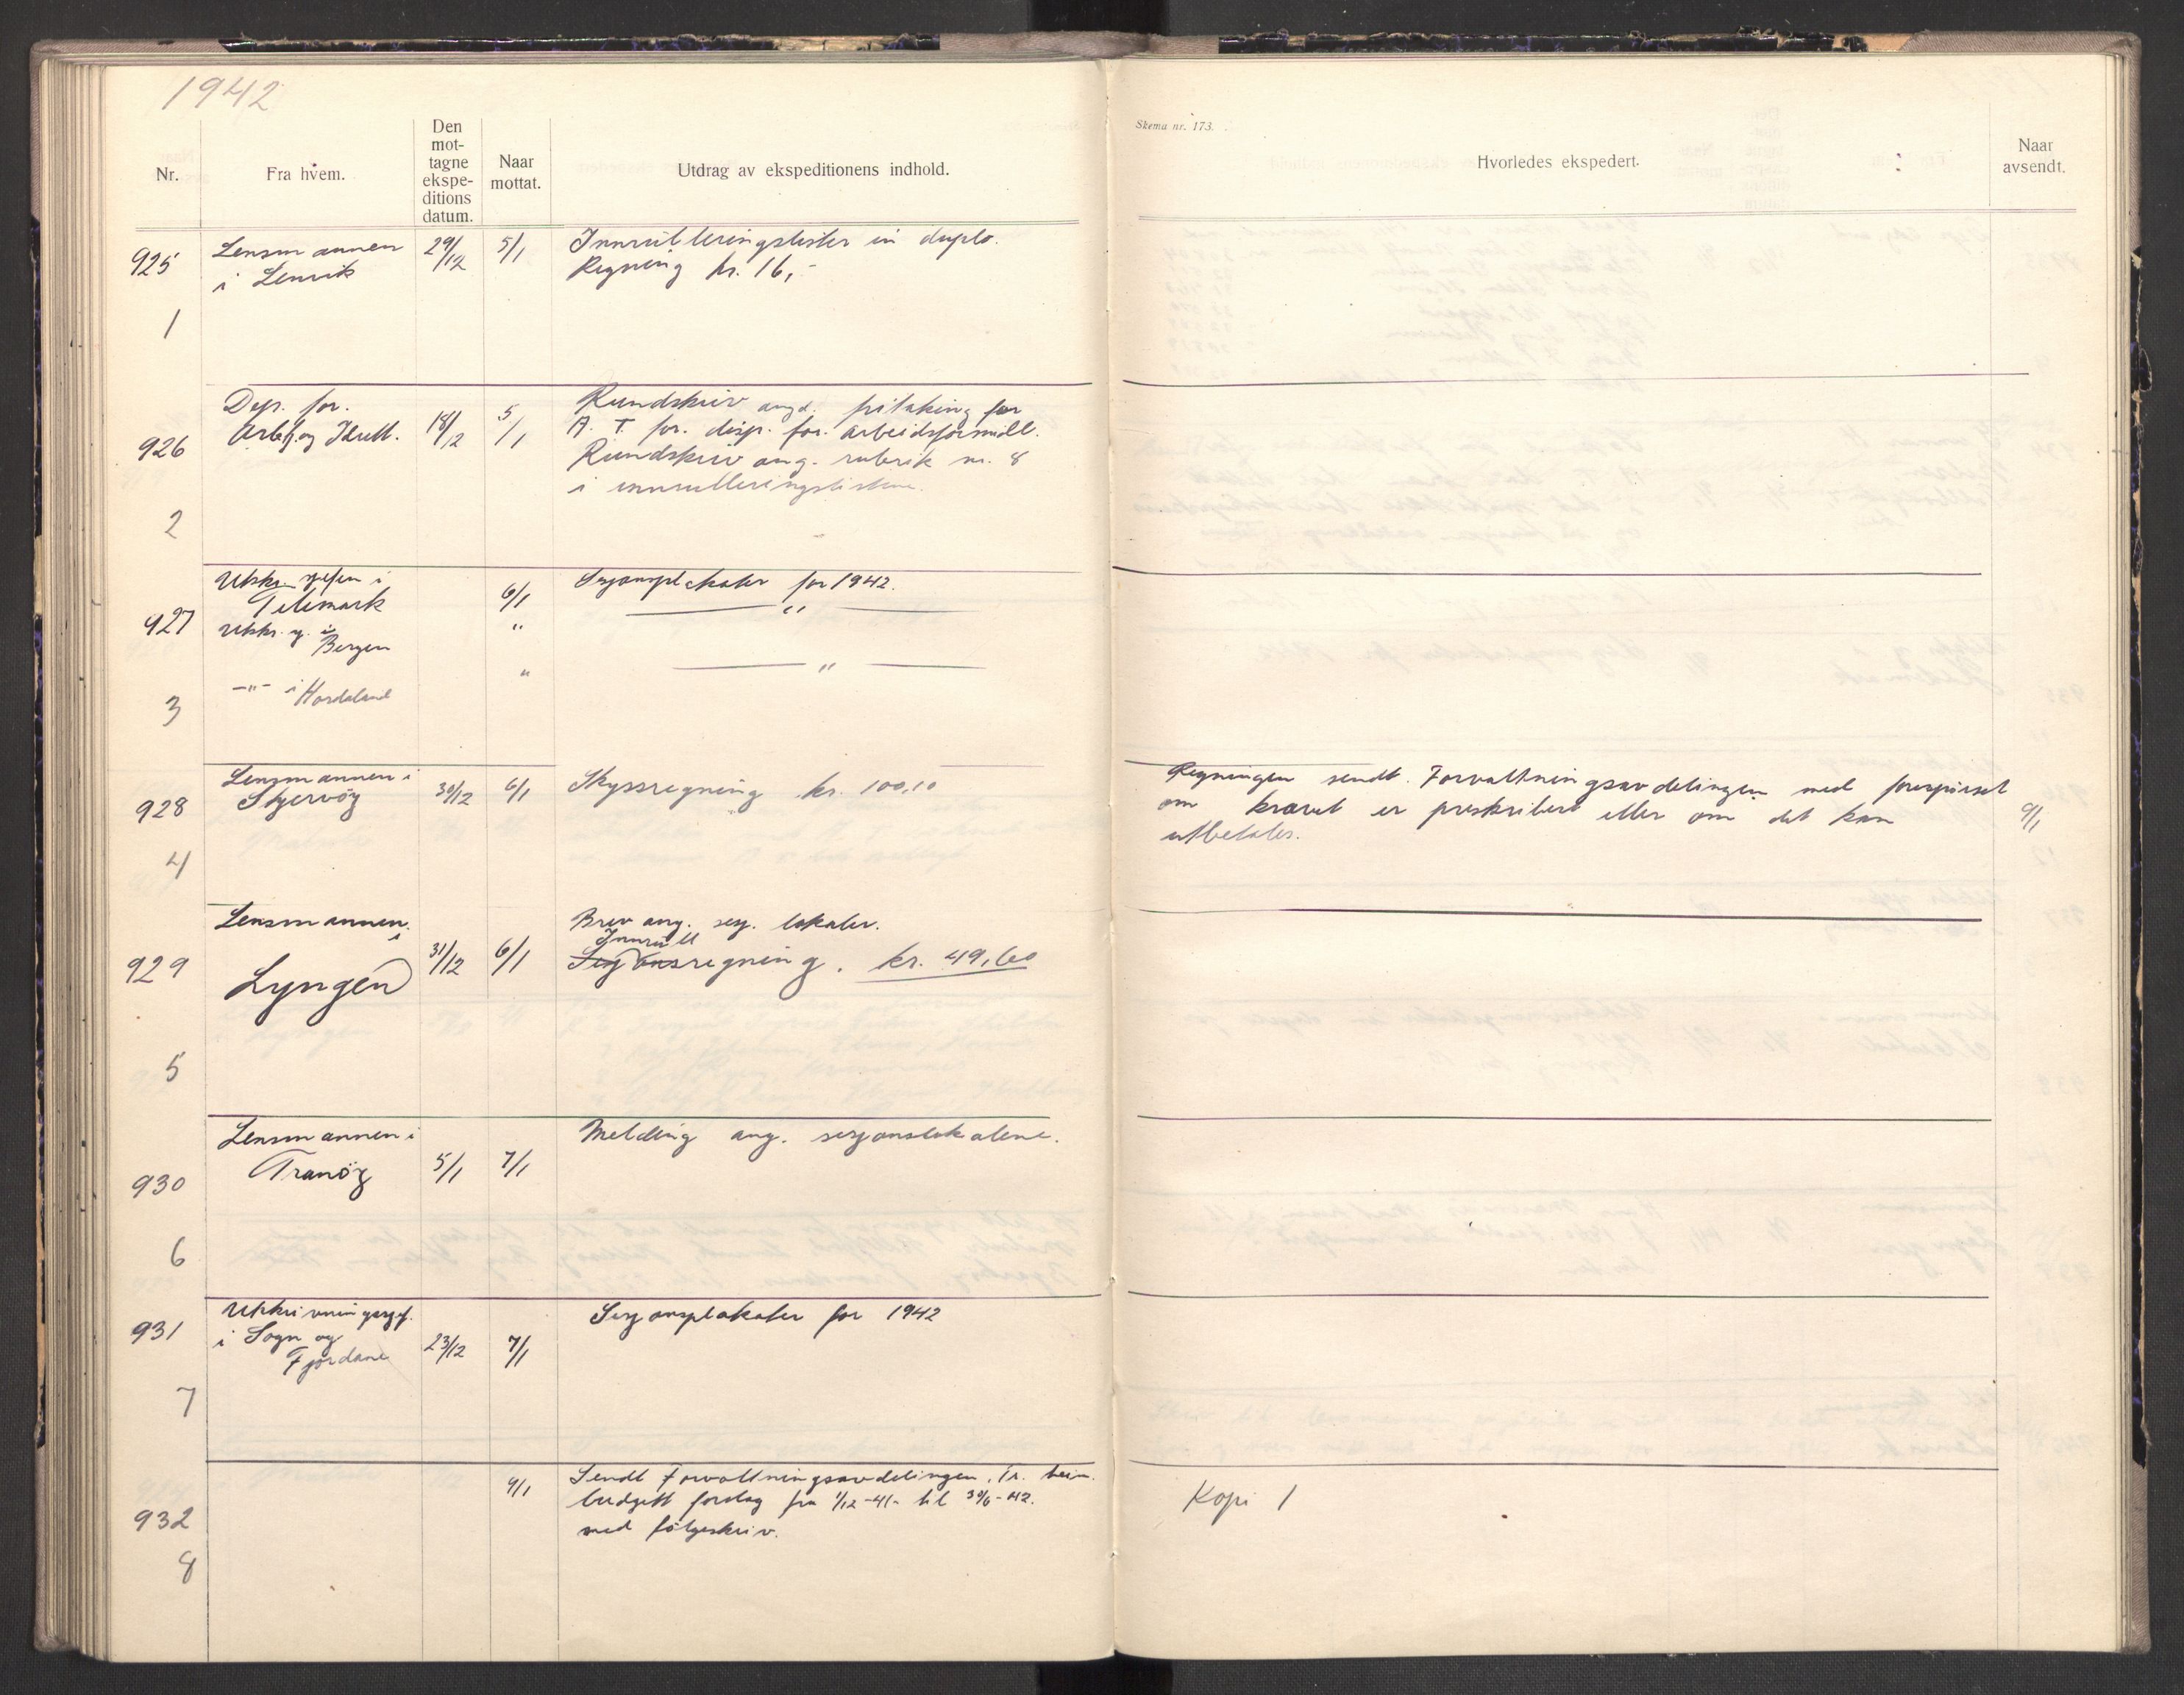 1942
Nr.
Fra hvem.
Den
mot-
tagne
ekspe-
ditions
datum.
Naar
mottat.
Utdrag av ekspeditionens indhold.
Skema nr. 173.
Hvorledes ekspedert.
Naar
avsendt.
925
1
Lensmannen
i Lenvik
29/12
5/1
Innrulleringslister in duplo.
Regning kr. 16,-
926
2
Dep. for.
Arbtj. og Idrett.
18/12
5/1
Rundskriv angd. fritaking for
A. T. for. disp. for. arbeidsformidl.
Rundskriv ang. rubrik nr. 8
i innrulleringslistene.
927
3
Utskr. sjefen i
Telemark
6/1
Sesjonsplakater for 1942.
Utskr. sj. i
Bergen
"
"
-"- i Hordaland
"
"
928
4
Lensmannen i
Skjervöy
30/12
6/1
Skyssregning kr. 100,10
Regningen sendt. Forvaltningsavdelingen med forespørsel
om kravet er preskribert eller om det kan
utbetales.
9/1
929
5
Lensmannen
i
Lyngen
31/12
6/1
Brev ang. sesj. lokaler.
Innrull
Sesjonsregning. kr. 49,60
930
6
Lensmannen i
Tranöy
5/1
7/1
Melding ang. sesjonslokalene.
931
7
Utskrivningssjef.
i Sogn og
Fjordane
23/12
7/1
Sesjonsplakater for 1942
932
8
9/1
Sendt Forvaltningsavdelingen, Tr. heim.
budgett forslag fra 1/12-41- til 30/6-42.
med følgeskriv.
Kopi 1